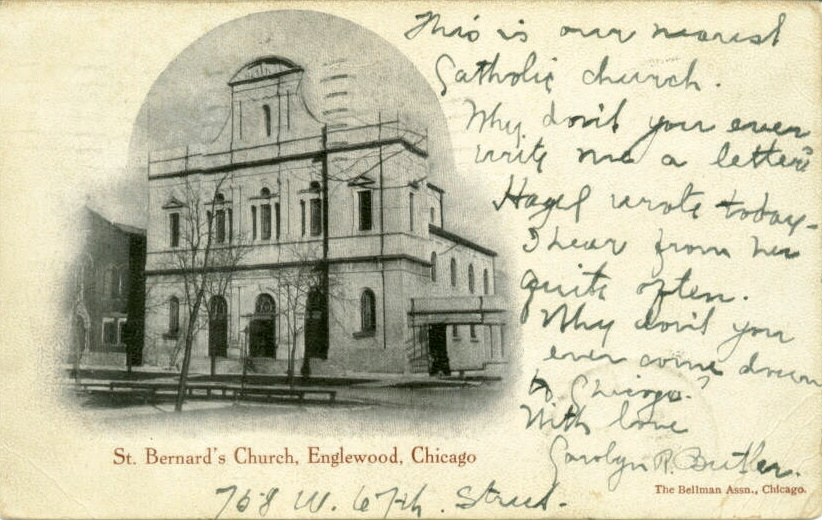 This is our nearest
Catholic church.
Why don't you ever
write me a letter?
Hazel wrote today-
I hear from her
quite often.
Why don't you
ever come down
to Chicago?
With love
Carolyn R. Butler.
St. Bernard's Church, Englewood, Chicago
The Bellman Assn., Chicago.
758 W. 67th. Street.